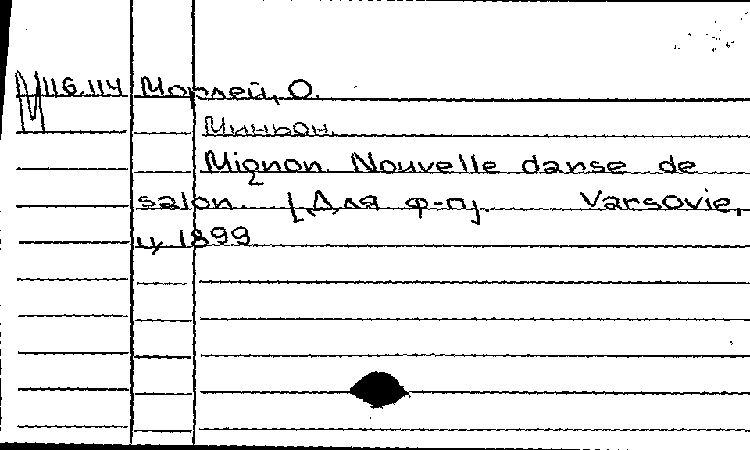 М 116.114 Морлей, О.
Миньон.
Mignon. Nouvelle danse de
salon. [Для ф-п]. Varsovie,
ц. 1899